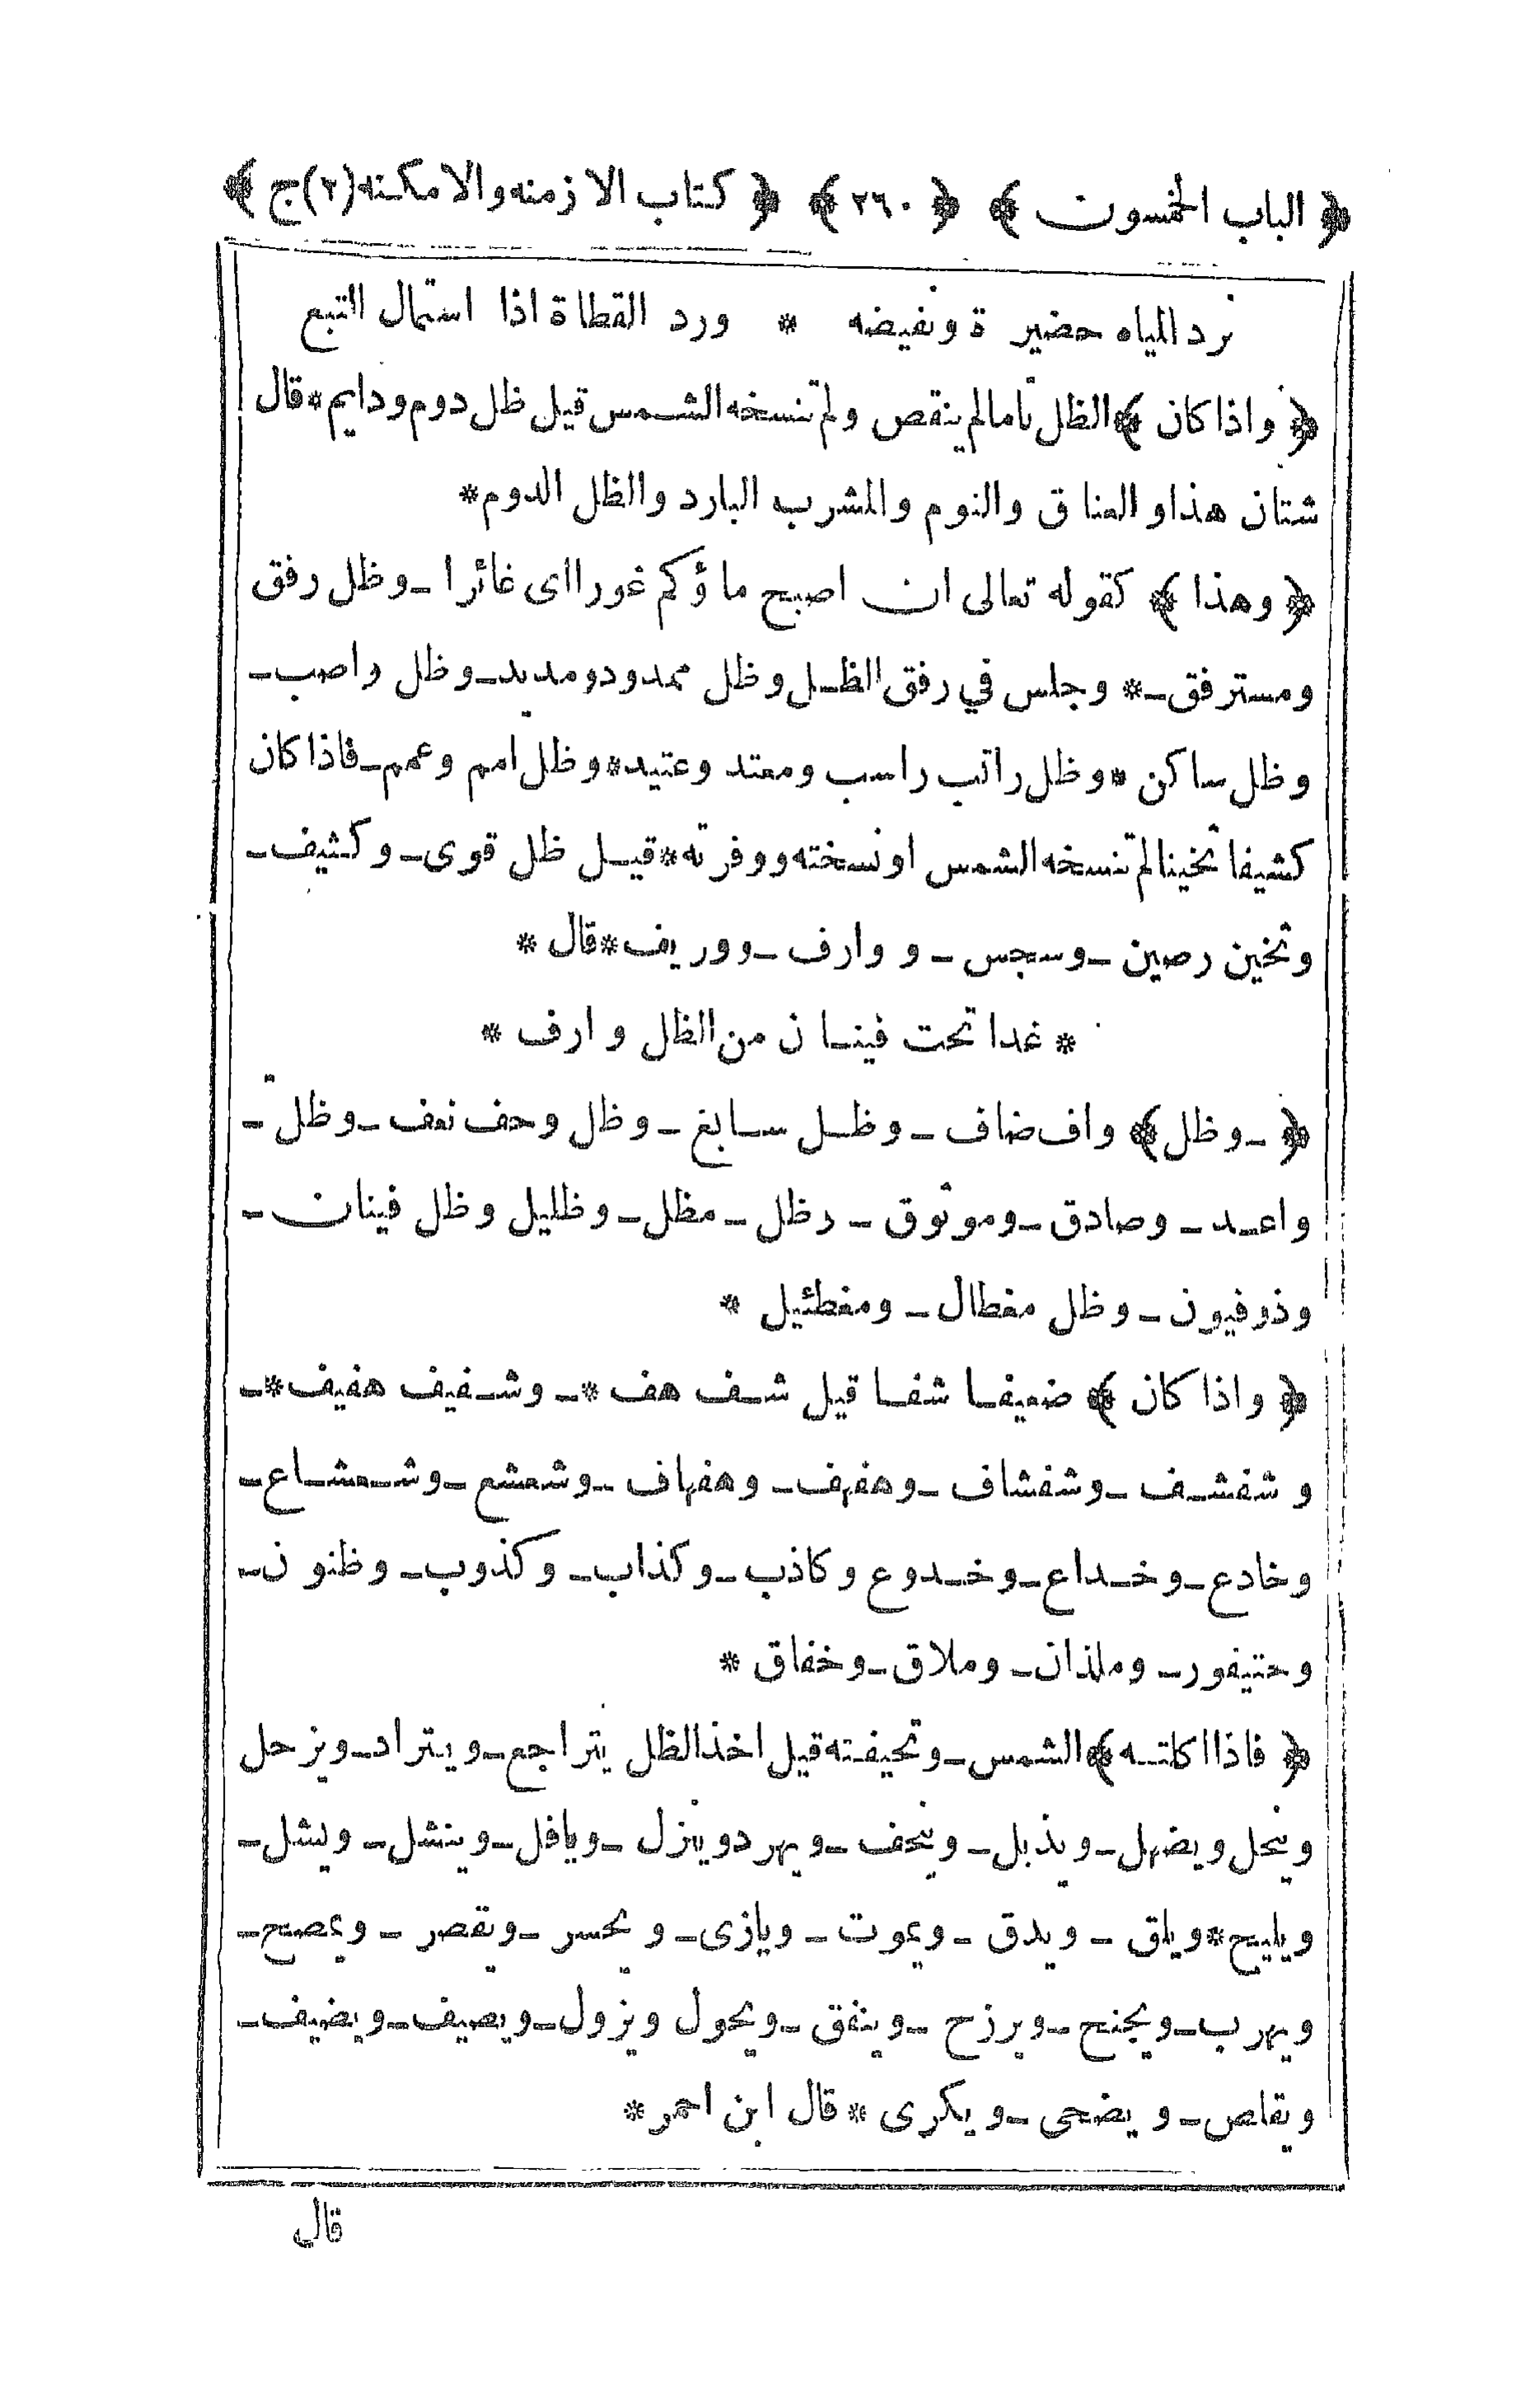 ﴿ الباب الخمسون ﴾ ﴿ ٢٦٠ ﴾ ﴿ كتاب الازمنه والامكنه (٢) ج ﴾
نرد المياه حضيرة ونفيضه * ورد القطاة اذا اسمال التبع
﴿ واذا كان ﴾ الظل تاما لم ينقص ولم تنسخه الشمس قيل ظل دوم ودايم * قال
شتان هذا و العناق والنوم والمشرب البارد والظل الدوم *
﴿ وهذا ﴾ كقوله تعالى ان اصبح ماؤكم غورا اى غائرا ـ وظل رفق
ومسترفق ـ * وجلس في رفق الظل وظل ممدود ومديد ـ وظل واصب ـ
وظل ساكن * وظل راتب راسب ومعتد وعتيد * وظل امم وعمم ـ فاذا كان
كثيفا ثخينا لم تنسخه الشمس او نسخته ووفرته * قيل ظل قوى ـ وكثيف ـ
وثخين رصين ـ وسجس ـ و وارف ـ ووريف * قال *
* غدا تحت فينان من الظل وارف *
﴿ ـ وظل ﴾ واف ضاف ـ وظل سابغ ـ وظل وحف نعف ـ وظل ـ
واعد ـ وصادق ـ وموثوق ـ وظل ـ مظل ـ وظليل وظل فينان ـ
وذوفيون ـ وظل مغطال ـ ومغطئيل *
﴿ واذا كان ﴾ ضعيفا شفا قيل شف هف * ـ وشفيف هفيف * ـ
و شفشف ـ وشفشاف ـ وهفهف ـ وهفهاف ـ وشعشع ـ وشعشاع ـ
وخادع ـ وخداع ـ وخدوع وكاذب ـ وكذاب ـ وكذوب ـ وظنون ـ
وحتيفور ـ وملذان ـ وملاق ـ وخفاق *
﴿ فاذا اكلته ﴾ الشمس ـ وتحيفته قيل اخذ الظل يتراجع ـ ويتراد ـ ويزحل
وينحل ويضهل ـ ويذبل ـ وينحف ـ ويهرد وينزل ـ ويافل ـ وينشل ـ ويشل ـ
ويليح * ويلق ـ ويدق ـ ويموت ـ ويازى ـ ويحسر ـ ويقصر ـ ويمصح ـ
ويهرب ـ ويجنح ـ ويرزح ـ وينفق ـ ويحول ويزول ـ ويصيف ـ ويضيف ـ
ويقلص ـ ويضحى ـ ويكرى * قال ابن احمر *
قال